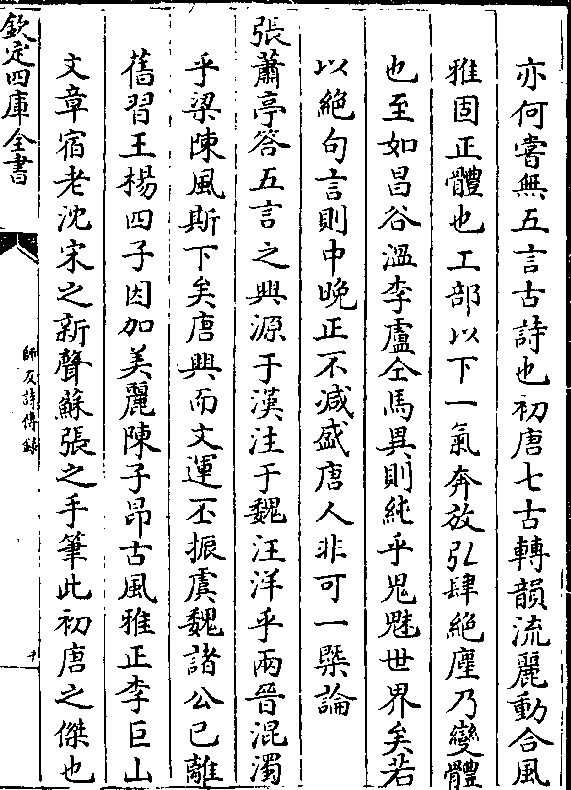 亦何嘗無五言古詩也初唐七古轉韻流麗動合風
雅固正體也工部以下一氣奔放弘肆絶塵乃變體
也至如昌谷溫李盧仝馬異則純乎鬼魅世界矣若
以絶句言則中晚正不減盛唐人非可一槩論
張蕭亭答五言之興源于漢注于魏汪洋乎兩晉混濁
乎梁陳風斯下矣唐興而文運丕振虞魏諸公已離
舊習王楊四子因加美麗陳子昻古風雅正李巨山
文章宿老沈宋之新聲蘇張之手筆此初唐之傑也
欽定四庫全書
師友詩傳錄